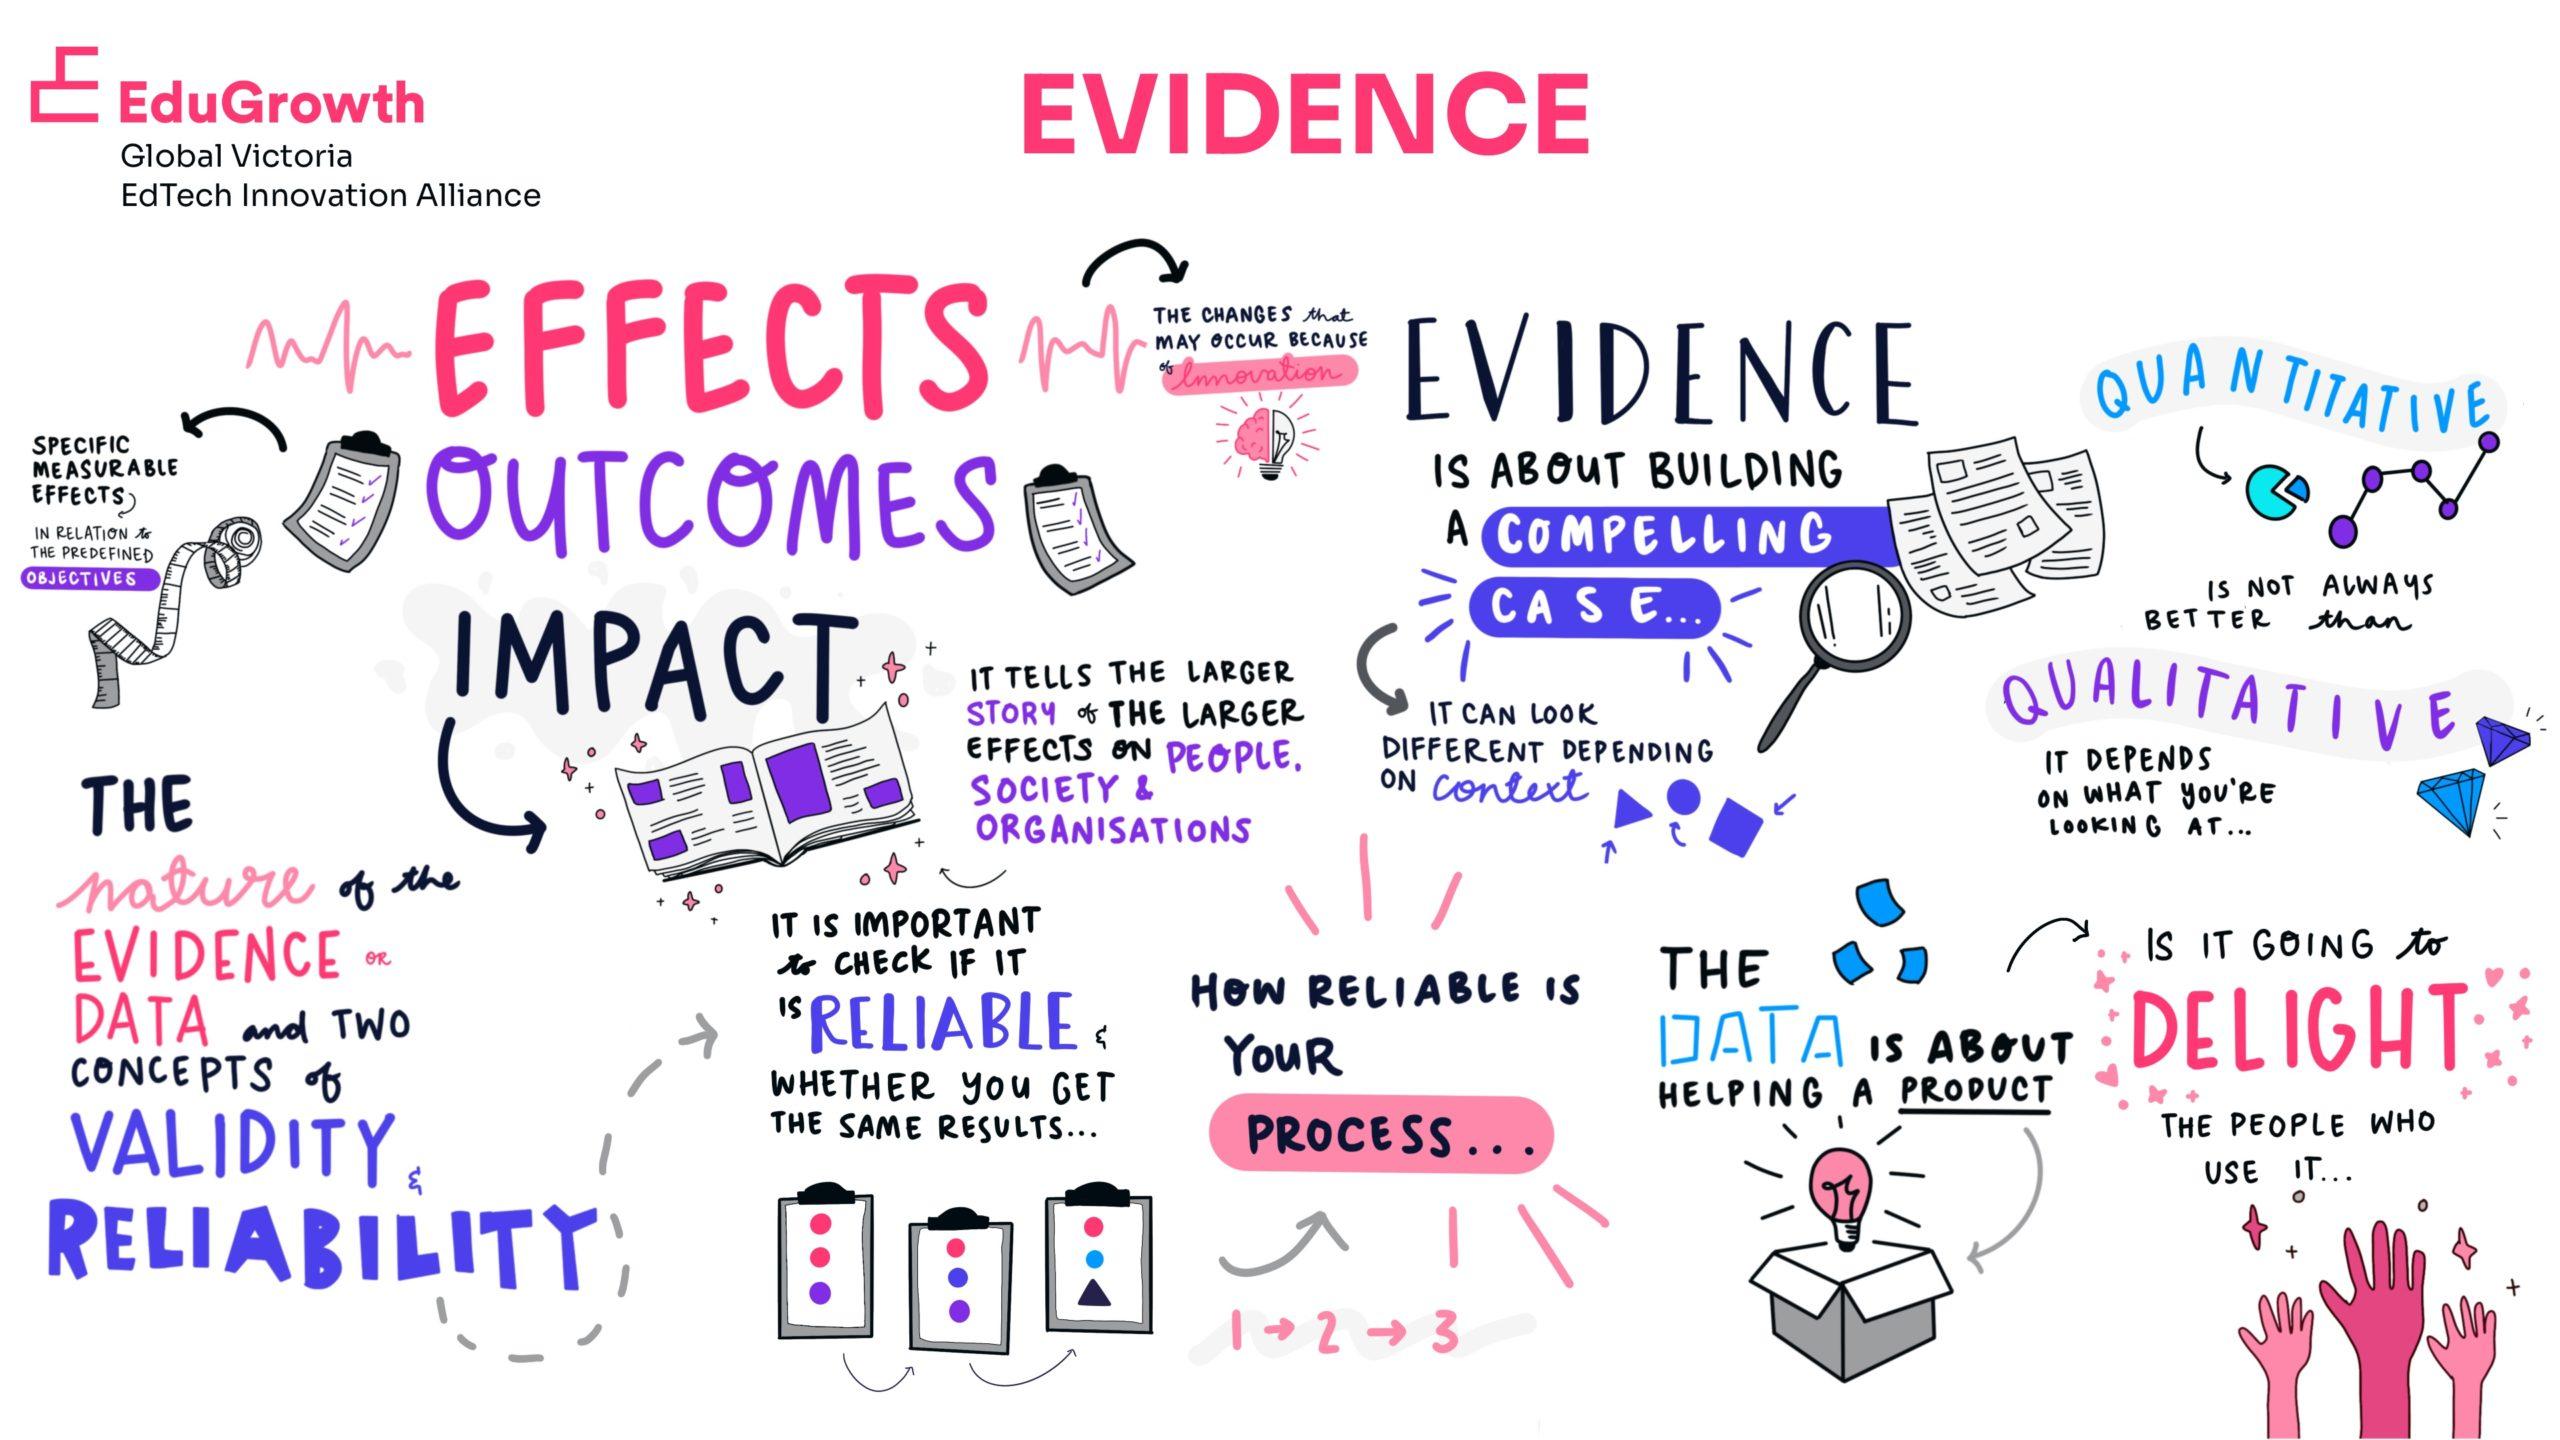 EduGrowth
Global Victoria
EdTech Innovation Alliance
EVIDENCE
EFFECTS
THE CHANGES that
MAY OCCUR BECAUSE
of Innovation
OUTCOMES
SPECIFIC
MEASURABLE
EFFECTS
IN RELATION to
THE PREDEFINED
OBJECTIVES
IMPACT
IT TELLS THE LARGER
STORY of THE LARGER
EFFECTS ON PEOPLE,
SOCIETY &
ORGANISATIONS
THE
nature of the
EVIDENCE OR
DATA and TWO
CONCEPTS of
VALIDITY &
RELIABILITY
IT IS IMPORTANT
to CHECK IF IT
IS RELIABLE &
WHETHER YOU GET
THE SAME RESULTS...
EVIDENCE
IS ABOUT BUILDING
A COMPELLING
CASE...
IT CAN LOOK
DIFFERENT DEPENDING
ON context
QUANTITATIVE
IS NOT ALWAYS
BETTER than
QUALITATIVE
IT DEPENDS
ON WHAT YOU'RE
LOOKING AT...
HOW RELIABLE IS
YOUR
PROCESS...
1 → 2 → 3
THE
DATA IS ABOUT
HELPING A PRODUCT
IS IT GOING to
DELIGHT
THE PEOPLE WHO
USE IT...